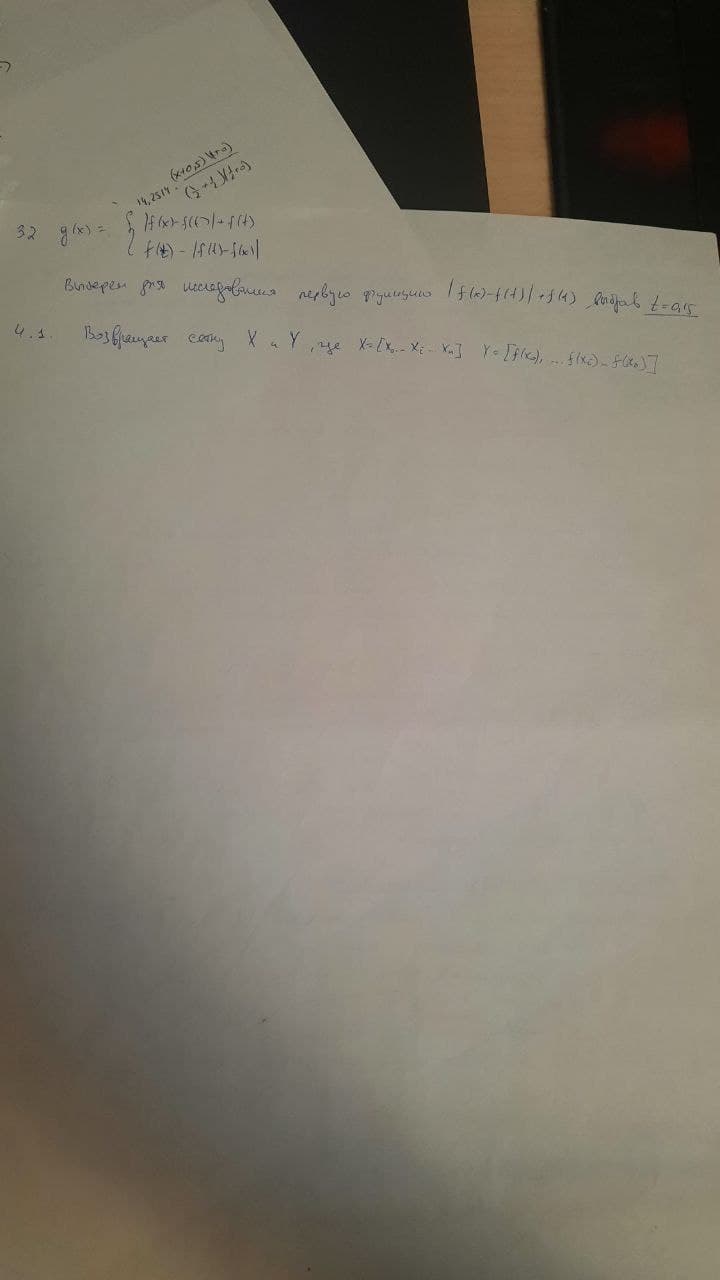 14,2514 · (x+0,5)(x+0)
(½+½)(½+0)
3.2 g(x) = { |f(x)-f(t)|+f(t)
f(t) - |f(t)-f(x)|
Выберем для исследования первую функцию |f(x)-f(t)|+f(t), выбрав t=0,15
4.1. Возвращает сетку X и Y, где X=[x₀...xᵢ...xₙ] Y=[f(x₀), ...f(xᵢ)...f(xₙ)]